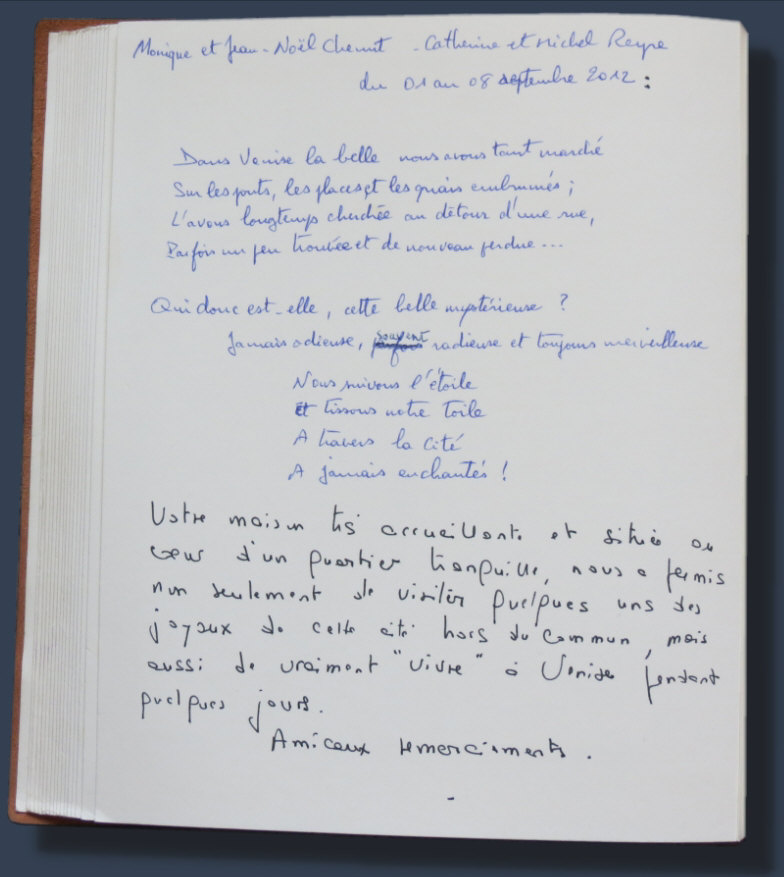 Monique et Jean-Noël Chemit - Catherine et Michel Reyre
du 01 au 08 septembre 2012 :
Dans Venise la belle nous avons tant marché
Sur les ponts, les places et les quais embrumés ;
L'avons longtemps cherchée au détour d'une rue,
Parfois un peu trouvée et de nouveau perdue ...
Qui donc est-elle, cette belle mystérieuse ?
Jamais odieuse, souvent radieuse et toujours merveilleuse
Nous suivons l'étoile
Et tissons notre toile
A travers la cité
A jamais enchantés !
Votre maison très accueillante et située au
coeur d'un quartier tranquille, nous a permis
non seulement de visiter quelques uns des
joyaux de cette cité hors du commun, mais
aussi de vraiment "vivre" à Venise pendant
quelques jours.
Amicaux remerciements.